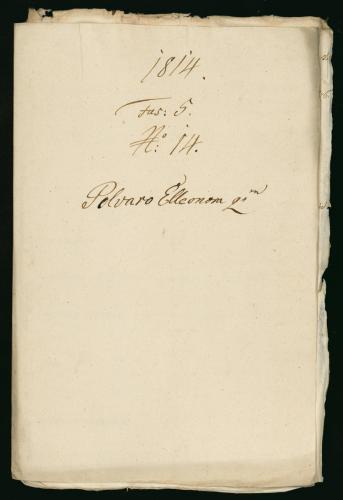 1814.
Fas: 5.
N.º 14.
Polvaro Elleonora q.m